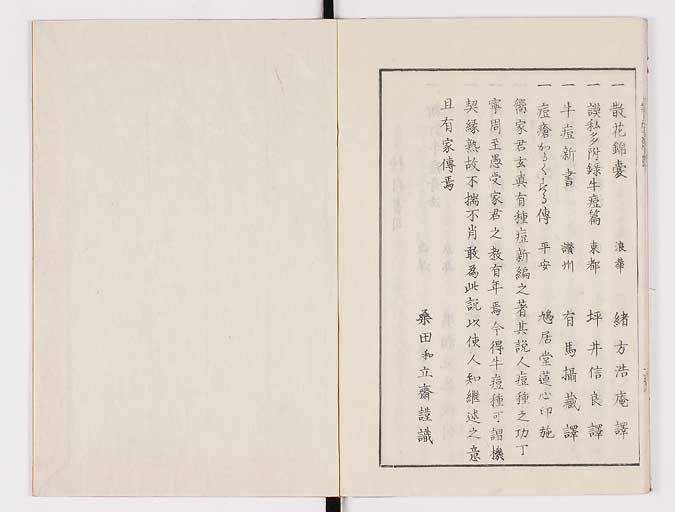 一 散花錦囊 浪華 緒方浩庵譯
一 謨私多附錄牛痘篇 東都 坪井信良譯
一 牛痘新書 讃州 有馬攝藏譯
一 痘瘡かろくする傳 平安 鳩居堂蓮心印施
嚮家君玄真有種痘新編之著其說人痘種之功丁
寧周至愚受家君之教有年焉今得牛痘種可謂機
契緣熟故不揣不肖敢為此說以使人知繼述之意
且有家傳焉
桑田和立齋謹識